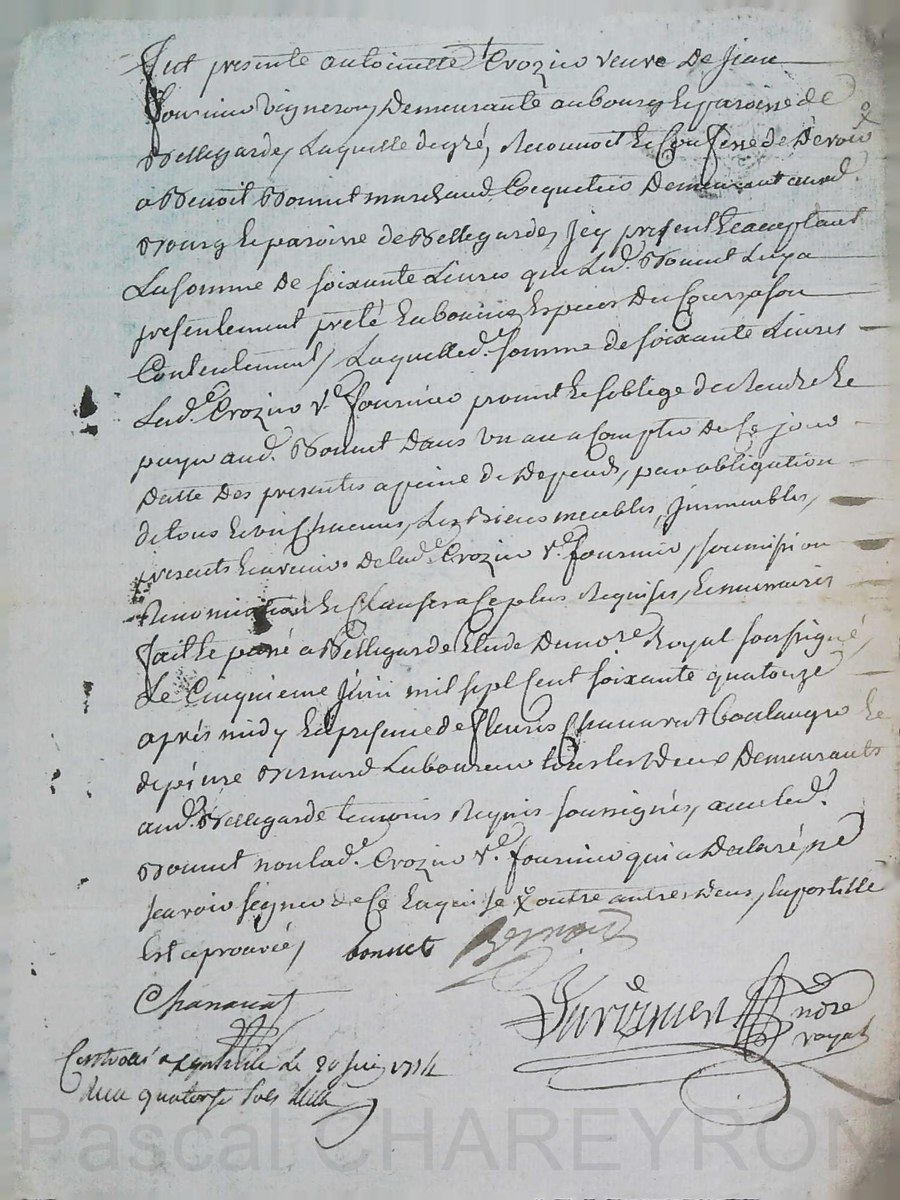 Fut presente antoinette Crozier veuve de Jean
fournier vigneron, Demeurante au bourg & paroisse de
Bellegarde, Laquelle de gré, Reconnoit & Confesse de Devoir
a Benoit Bonnet marchand Coquetier Demeurant aud.
Bourg & paroisse de Bellegarde, Jcy present & acceptant
La somme De soixante Livres que Led. Bonnet Luy a
presentement preté en bonnes Especes Du Cours a son
Contentement, Laquelle d. somme de soixante Livres
Lad.e Crozier v.e fournier promet & s'oblige de Rendre &
payer aud. Bonnet Dans un an a Compter de Ce jour
Datte Des presentes a peine de Depends, par obligation
de tous & un Chacuns, Les Biens meubles, Jmmeubles,
presents & avenirs De lad.e Crozier v.e fournier, soumission
Renonciation & Clauses a Ce plus Requises, & necessaires
fait & passé a Bellegarde Etude Du nore Royal soussigné,
Le Cinquieme Juin mil sept Cent soixante quatorze
après midy En presence de fleuris Chanavat boulanger &
de pierre Bernard Laboureur tous les Deux Demeurants
aud. Bellegarde temoins Requis soussignés, avec led.
Bonnet non lad.e Crozier v.e fournier qui a Declaré, ne
scavoir signer de Ce Enquise x outre autres deux, L'apostille
Est aprouvée, bonnet Bernard
Chanavat
nore
royal
Controllé a le 20 juin 1774
Reçu quatorze sols
Pascal CHAREYRON